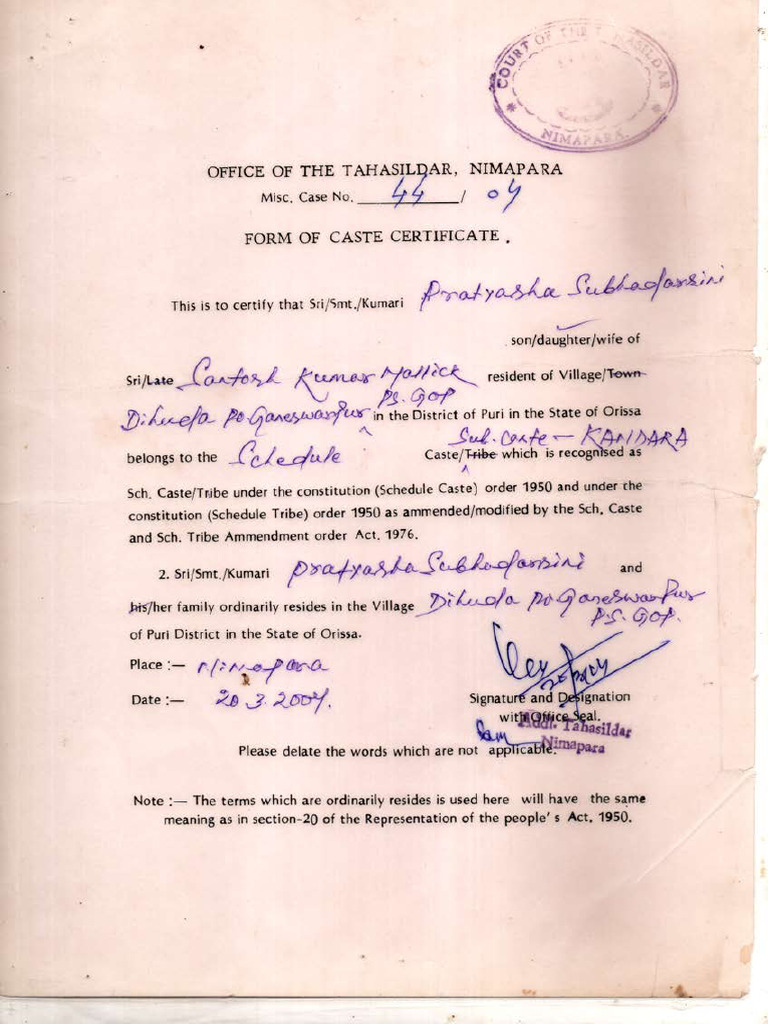 COURT OF THE TAHASILDAR
NIMAPARA.
OFFICE OF THE TAHASILDAR, NIMAPARA
Misc. Case No. 44 / 04
FORM OF CASTE CERTIFICATE.
This is to certify that Sri/Smt./Kumari Pratyasha Subhadarsini
son/daughter/wife of
Sri/Late Santosh Kumar Mallick resident of Village/Town
PS. GOP
Dihuda Po Ganeswarpur in the District of Puri in the State of Orissa
Sub. Caste - KANDARA
belongs to the Schedule Caste/Tribe which is recognised as
Sch. Caste/Tribe under the constitution (Schedule Caste) order 1950 and under the
constitution (Schedule Tribe) order 1950 as ammended/modified by the Sch. Caste
and Sch. Tribe Ammendment order Act. 1976.
2. Sri/Smt./Kumari Pratyasha Subhadarsini and
his/her family ordinarily resides in the Village Dihuda Po Ganeswarpur
PS. GOP.
of Puri District in the State of Orissa.
Place :— Nimapara
Date :— 20.3.2004.
Signature and Designation
with Office Seal.
Addl. Tahasildar
Nimapara
Please delate the words which are not applicable.
Note :— The terms which are ordinarily resides is used here will have the same
meaning as in section-20 of the Representation of the people's Act. 1950.